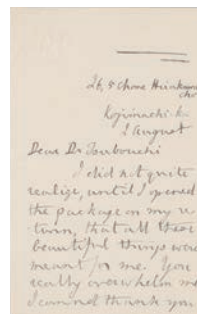 26, 5 Chome Hirakawa
cho
Kojimachi-ku
1 August
Dear Dr Tsubouchi
I did not quite
realize, until I opened
the package on my re
turn, that all these
beautiful things were
meant for me. You
really overwhelm me
I cannot thank you